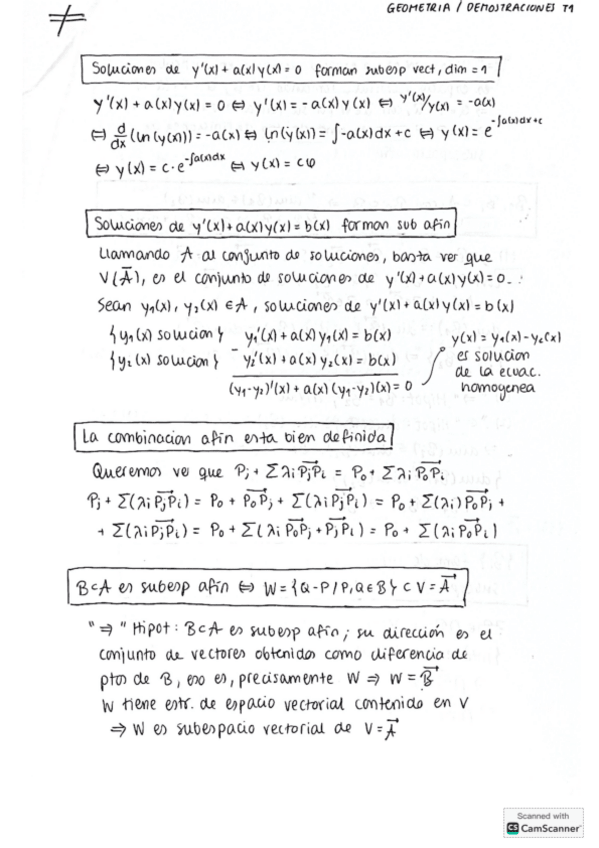 GEOMETRIA / DEMOSTRACIONES T1
≠
Soluciones de y'(x) + a(x)y(x) = 0 forman subesp vect, dim = 1
y'(x) + a(x)y(x) = 0 ⇔ y'(x) = -a(x)y(x) ⇔ y'(x)/y(x) = -a(x)
⇔ d/dx (ln(y(x))) = -a(x) ⇔ ln(y(x)) = ∫-a(x)dx + c ⇔ y(x) = e^{-∫a(x)dx+c}
⇔ y(x) = c·e^{-∫a(x)dx} ⇔ y(x) = cφ
Soluciones de y'(x) + a(x)y(x) = b(x) forman sub afín
Llamando A al conjunto de soluciones, basta ver que
V(A⃗), es el conjunto de soluciones de y'(x) + a(x)y(x) = 0.
Sean y₁(x), y₂(x) ∈ A, soluciones de y'(x) + a(x)y(x) = b(x)
{y₁(x) solucion} y₁'(x) + a(x)y₁(x) = b(x)
{y₂(x) solucion} - y₂'(x) + a(x)y₂(x) = b(x)
(y₁-y₂)'(x) + a(x)(y₁-y₂)(x) = 0
y(x) = y₁(x) - y₂(x)
es solucion
de la ecuac.
homogenea
La combinacion afín esta bien definida
Queremos ver que Pj + Σλi PjPi⃗ = P₀ + Σλi P₀Pi⃗
Pj + Σ(λi PjPi⃗) = P₀ + P₀Pj⃗ + Σ(λi PjPi⃗) = P₀ + Σ(λi)P₀Pj⃗ +
+ Σ(λi PjPi⃗) = P₀ + Σ(λi P₀Pj⃗ + PjPi⃗) = P₀ + Σ(λi P₀Pi⃗)
B⊂A es subesp afín ⇔ W = {Q-P / P,Q ∈ B} ⊂ V = A⃗
"⇒" Hipot: B⊂A es subesp afín; su dirección es el
conjunto de vectores obtenidos como diferencia de
ptos de B, eso es, precisamente W ⇒ W = B⃗
W tiene estr. de espacio vectorial contenido en V
⇒ W es subespacio vectorial de V = A⃗
Scanned with
CS CamScanner